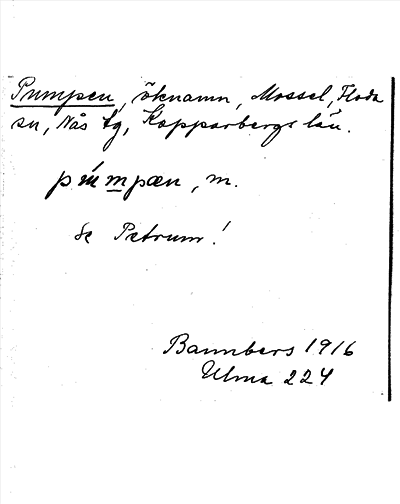 Pumpen, öknamn, Mossel, Floda
sn, Nås tg, Kopparbergs län.
pú m̲pæn, m.
Se Petrum!
Bannbers 1916
Ulma 224